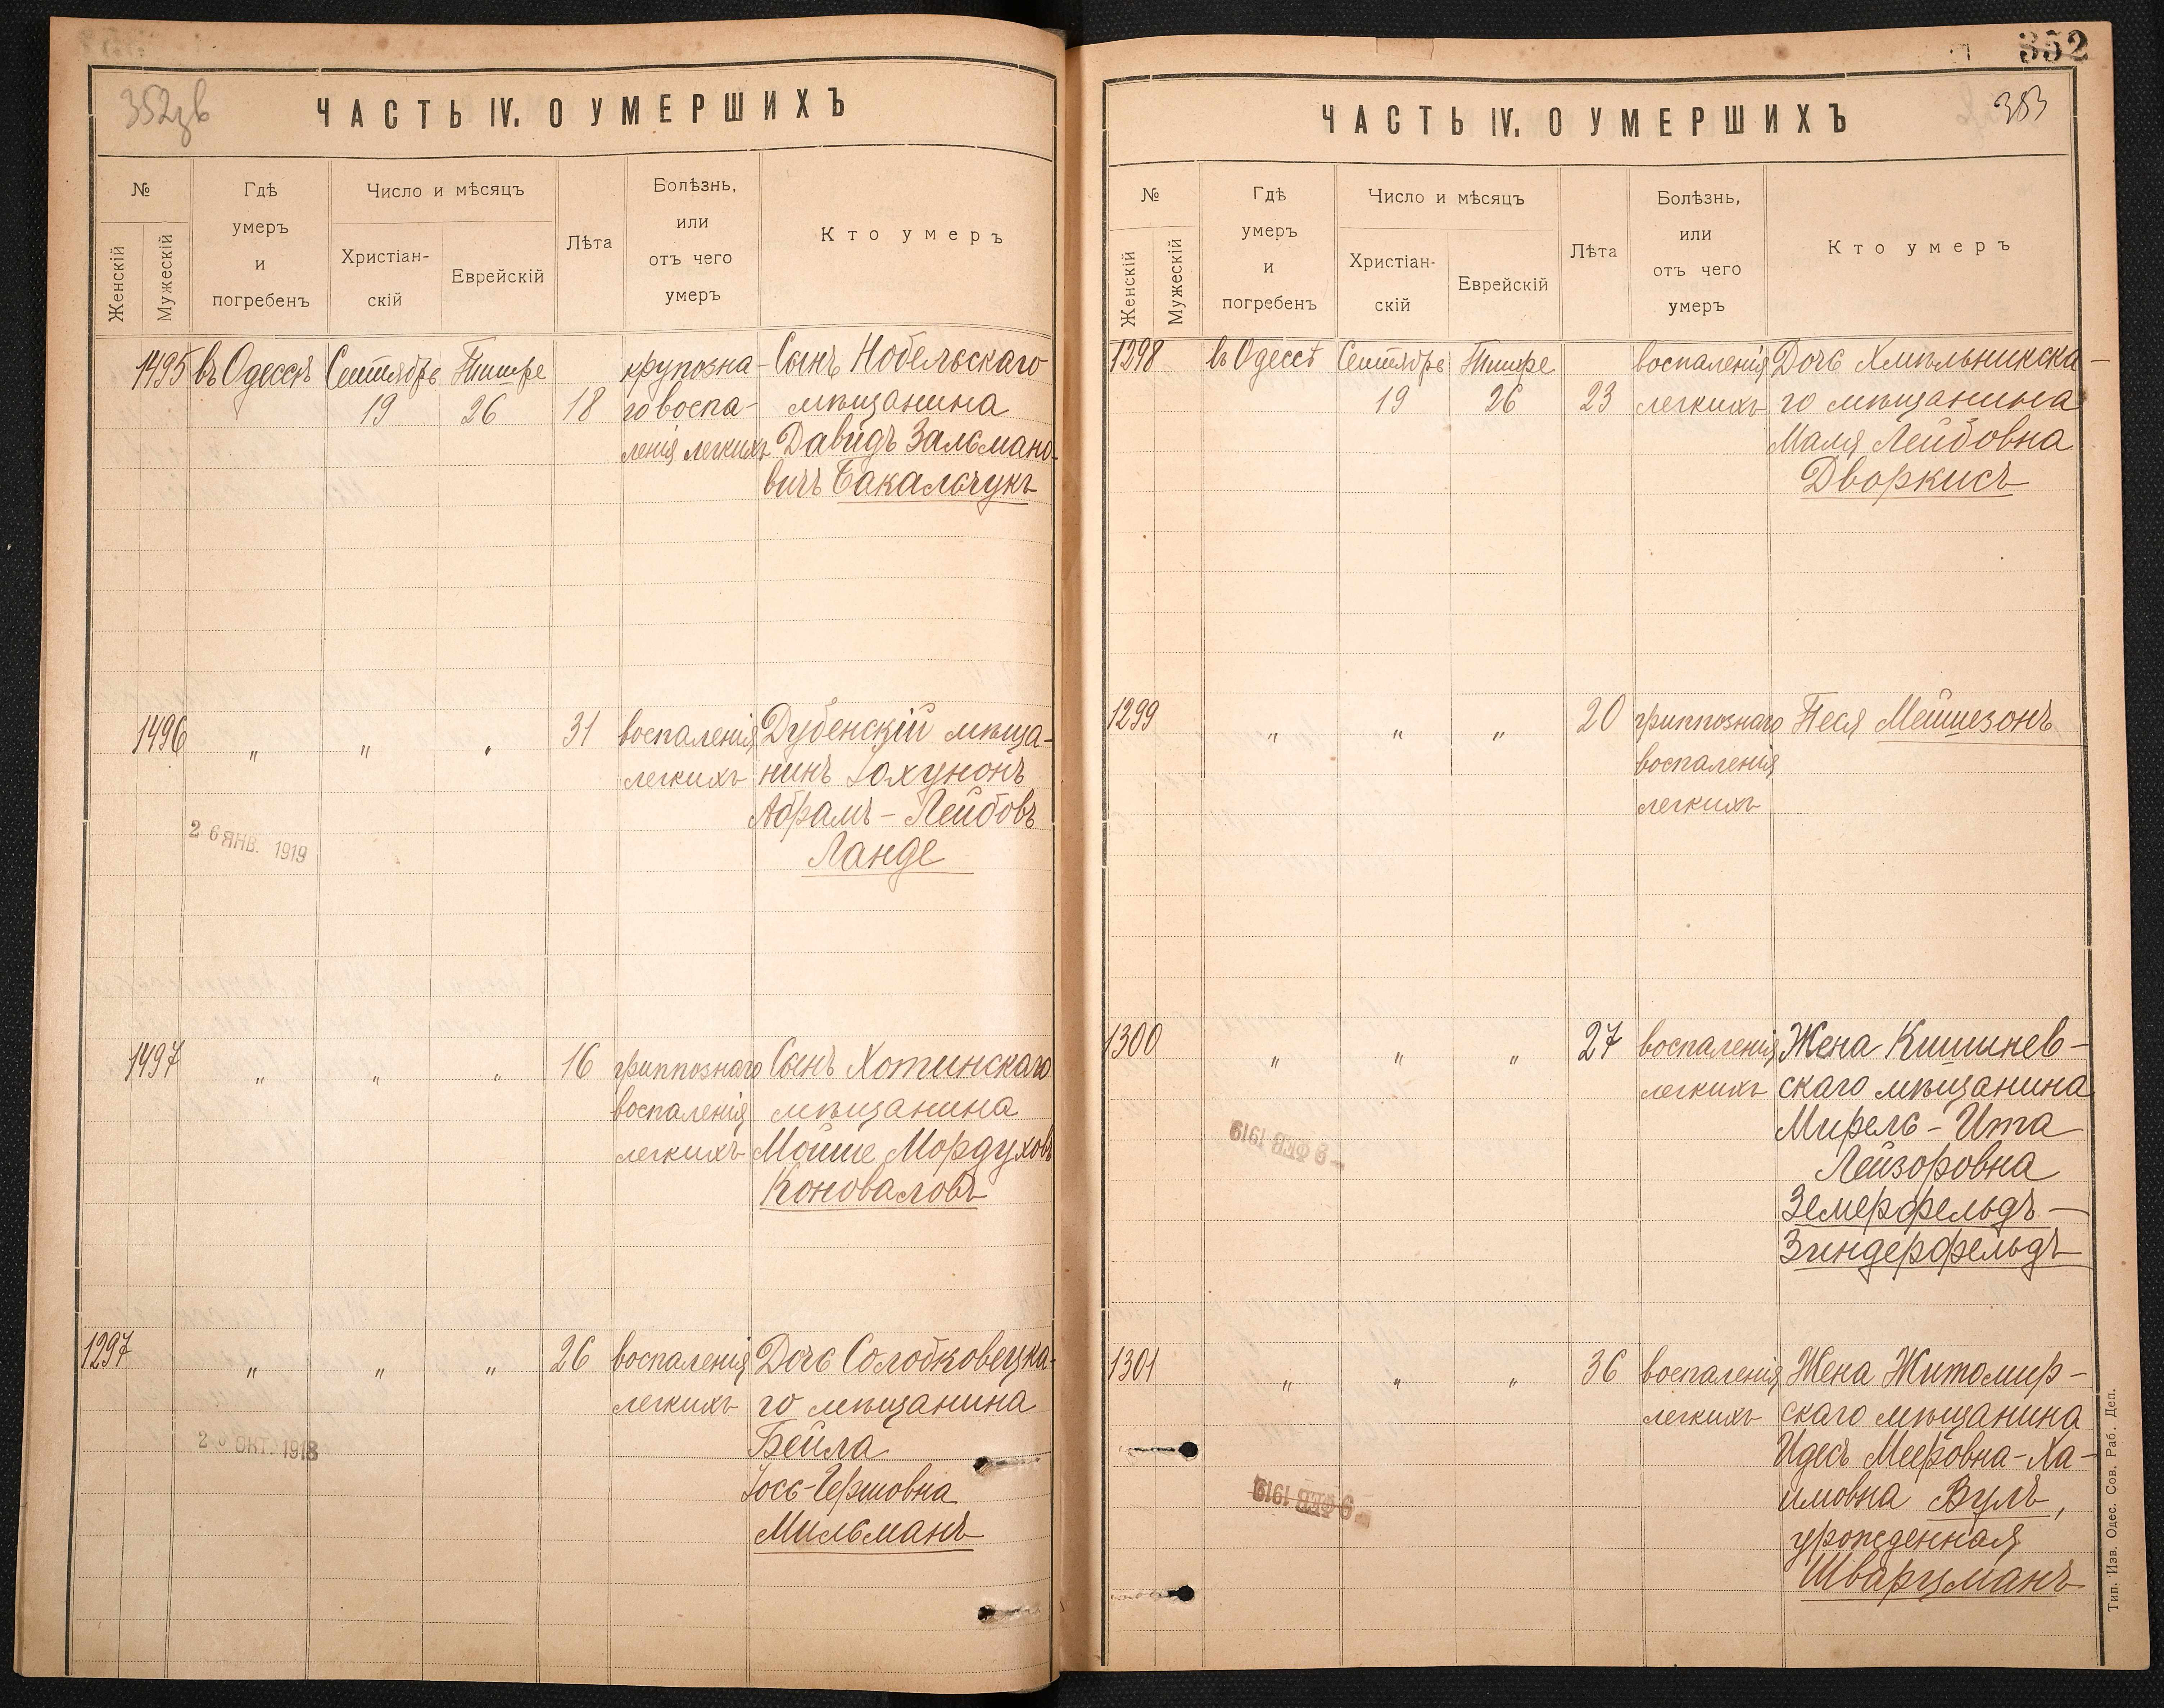 352зв
ЧАСТЬ IV. О УМЕРШИХЪ
№
Женскій
Мужескій
Гдѣ
умеръ
и
погребенъ
Число и мѣсяцъ
Христіан-
скій
Еврейскій
Лѣта
Болѣзнь,
или
отъ чего
умеръ
Кто умеръ
1495 въ Одессѣ Сентябрь Тишре крупозна- Сынъ Нобельскаго
19 26 18 го воспа- мѣщанина
ленія легкихъ Давидъ Зальмано-
вичъ Бакальчукъ
1496 " " " 31 воспаленія Дубенскій мѣща-
легкихъ нинъ
Абрамъ-Лейбовъ
Ланде
26 ЯНВ. 1919
1497 " " " 16 гриппознаго Сынъ Хотинскаго
воспаленія мѣщанина
легкихъ Мойше Мордуховъ
Коноваловъ
1297 " " " 26 воспаленія Дочь Солобковецка-
легкихъ го мѣщанина
Бейла
Іось-Гершовна
Мильманъ
ОКТ. 1918
352
353
ЧАСТЬ IV. О УМЕРШИХЪ
№
Женскій
Мужескій
Гдѣ
умеръ
и
погребенъ
Число и мѣсяцъ
Христіан-
скій
Еврейскій
Лѣта
Болѣзнь,
или
отъ чего
умеръ
Кто умеръ
1298 въ Одессѣ Сентябрь Тишре воспаленія Дочь Хмѣльникска-
19 26 23 легкихъ го мѣщанина
Маля Лейбовна
Дворкисъ
1299 " " " 20 гриппознаго Песя Мейшезонъ
воспаленія
легкихъ
1300 " " " 27 воспаленія Жена Кишинев-
легкихъ скаго мѣщанина
Мирель-Ита
Лейзоровна
Земерфельдъ-
Зиндерфельдъ
- 9 ФЕВ 1919
1301 " " " 36 воспаленія Жена Житомир-
легкихъ скаго мѣщанина
Идесъ Мееровна-Ха-
имовна Вулъ,
урожденная
Шварцманъ
- 9 ФЕВ 1919
Тип. Изв. Одес. Сов. Раб. Деп.